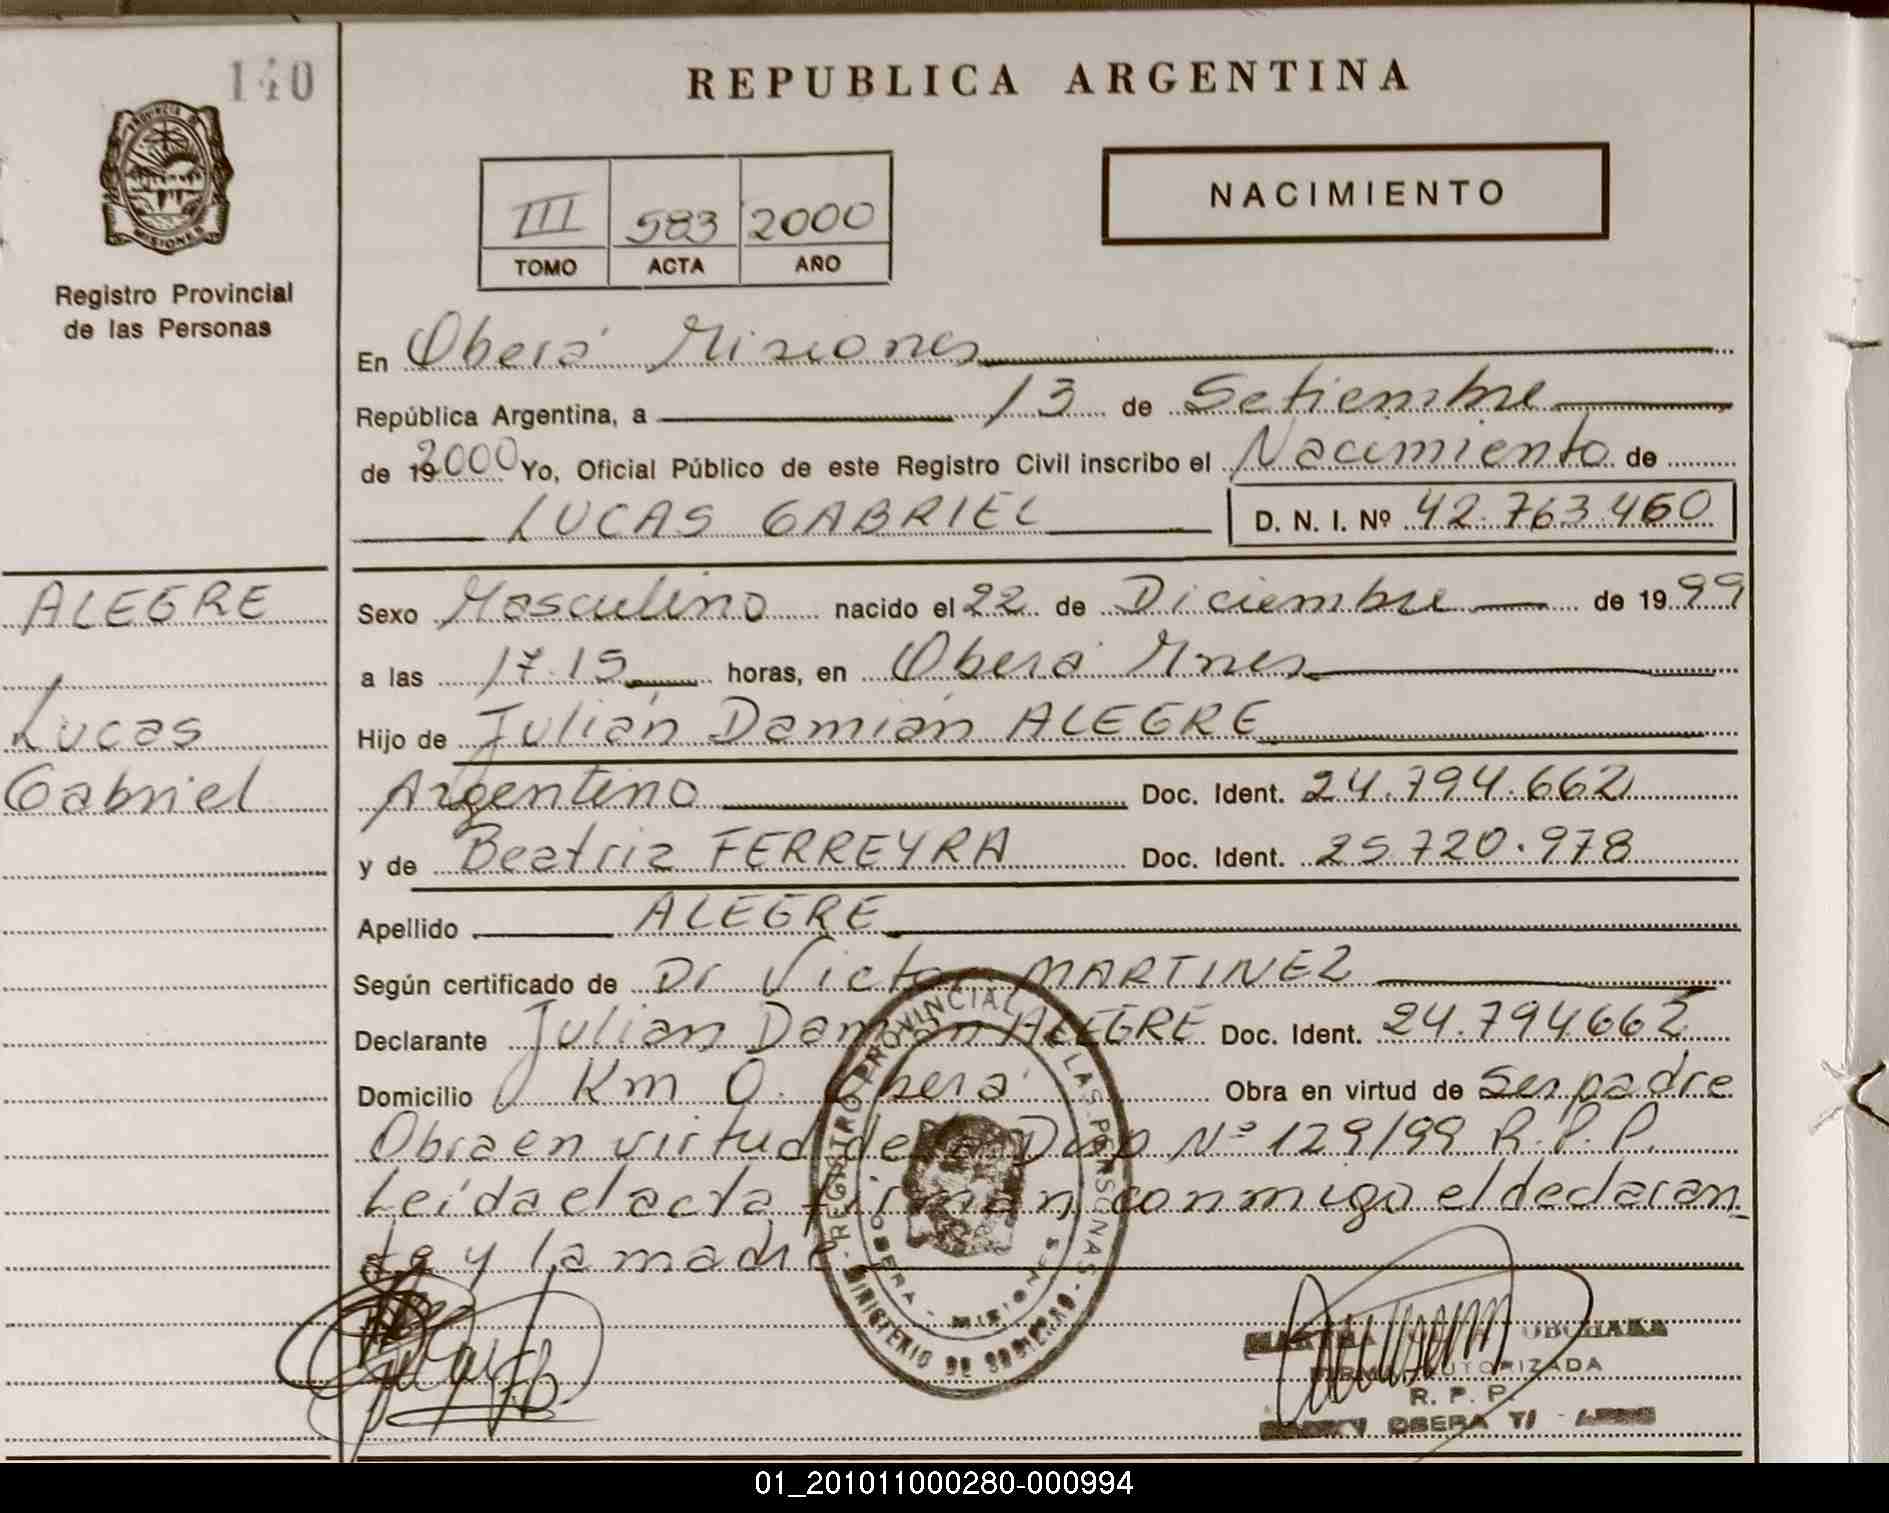 140
PROVINCIA D
MISIONES
Registro Provincial
de las Personas
REPUBLICA ARGENTINA
III 583 2000
TOMO ACTA AÑO
NACIMIENTO
En Oberá Misiones
República Argentina, a 13 de Setiembre
de 19 2000 Yo, Oficial Público de este Registro Civil inscribo el Nacimiento de
LUCAS GABRIEL D. N. I. Nº 42.763.460
ALEGRE
Lucas
Gabriel
Sexo Masculino nacido el 22 de Diciembre de 19 99
a las 17.15 horas, en Oberá Mnes
Hijo de Julián Damián ALEGRE
Argentino Doc. Ident. 24.794.662
y de Beatriz FERREYRA Doc. Ident. 25.720.978
Apellido ALEGRE
Según certificado de Dr Victor MARTINEZ
Declarante Julian Damian ALEGRE Doc. Ident. 24.794.662
Domicilio Km 0. Oberá Obra en virtud de ser padre
Obra en virtud de la Disp Nº 129/99 R.P.P.
Leída el acta firman conmigo el declaran_
te y la madre
REGISTRO PROVINCIAL DE LAS PERSONAS - MINISTERIO DE GOBIERNO -
OBERA - MISIONES
FIRMA AUTORIZADA
R. P. P.
OBERA
01_201011000280-000994